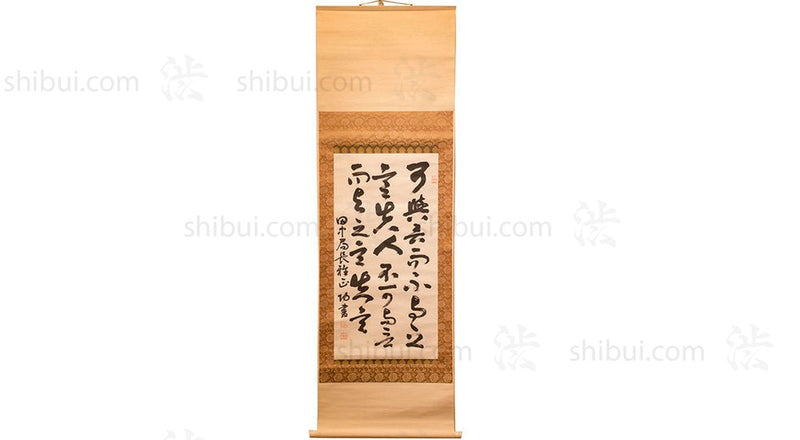 shibui.com 渋 shibui.com 渋
可與言而不与之
言失人不可与言
而与之言失言
田中局長雅正 功書
shibui.com shibui.com 渋
渋 shibui.com 渋 shibui.com 渋